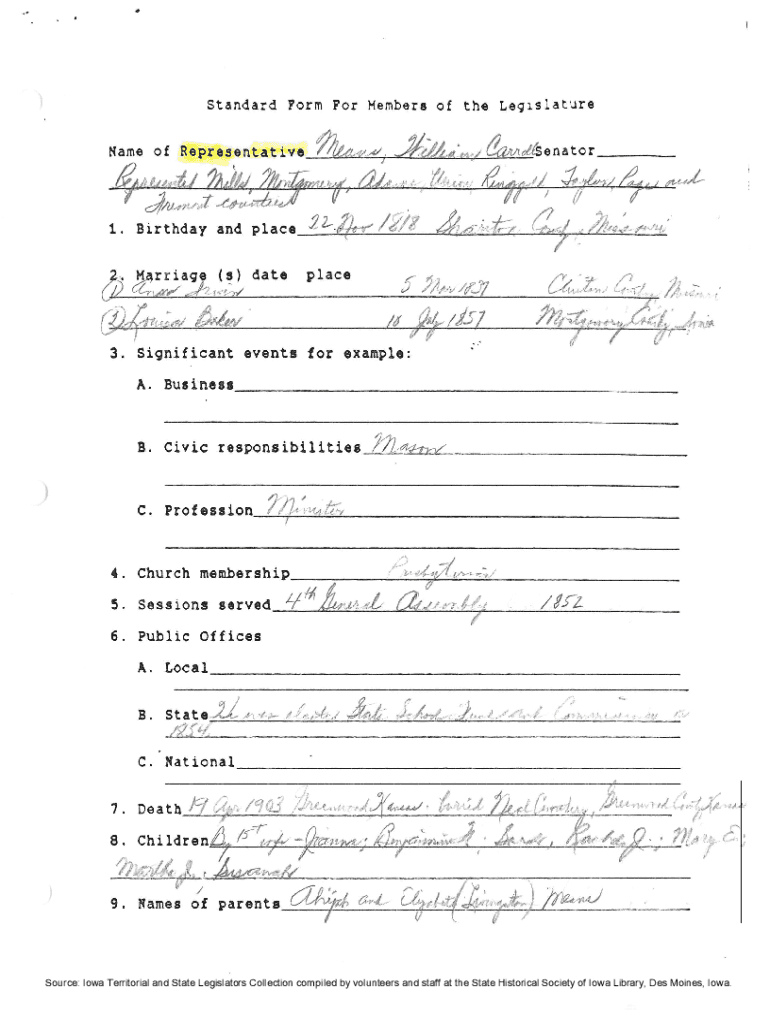 Standard Form For Members of the Legislature
Name of Representative Means, William Carroll Senator
Represented Mills, Montgomery, Adams, Union Ringgold, Taylor, Page and
Fremont counties
1. Birthday and place 22 Nov 1818 County, Missouri
2. Marriage (s) date place
(1) 5 Nov 1837 Clinton County, Missouri
(2) Louisa Baker 10 July 1857 Montgomery County, Iowa
3. Significant events for example:
A. Business
B. Civic responsibilities Mason
C. Profession Minister
4. Church membership
5. Sessions served 4th General Assembly 1852
6. Public Offices
A. Local
B. State He was elected State School Commissioner
1854
C. National
7. Death 19 Apr 1903 Greenwood, Kansas. buried Neal Cemetery, Greenwood County Kansas
8. Children By 1st wife - Joanna; Benjamin K. Sarah, Rachel J.; Mary E;
Martha J. Susanah
9. Names of parents and Elizabeth (Livingston) Means
Source: Iowa Territorial and State Legislators Collection compiled by volunteers and staff at the State Historical Society of Iowa Library, Des Moines, Iowa.